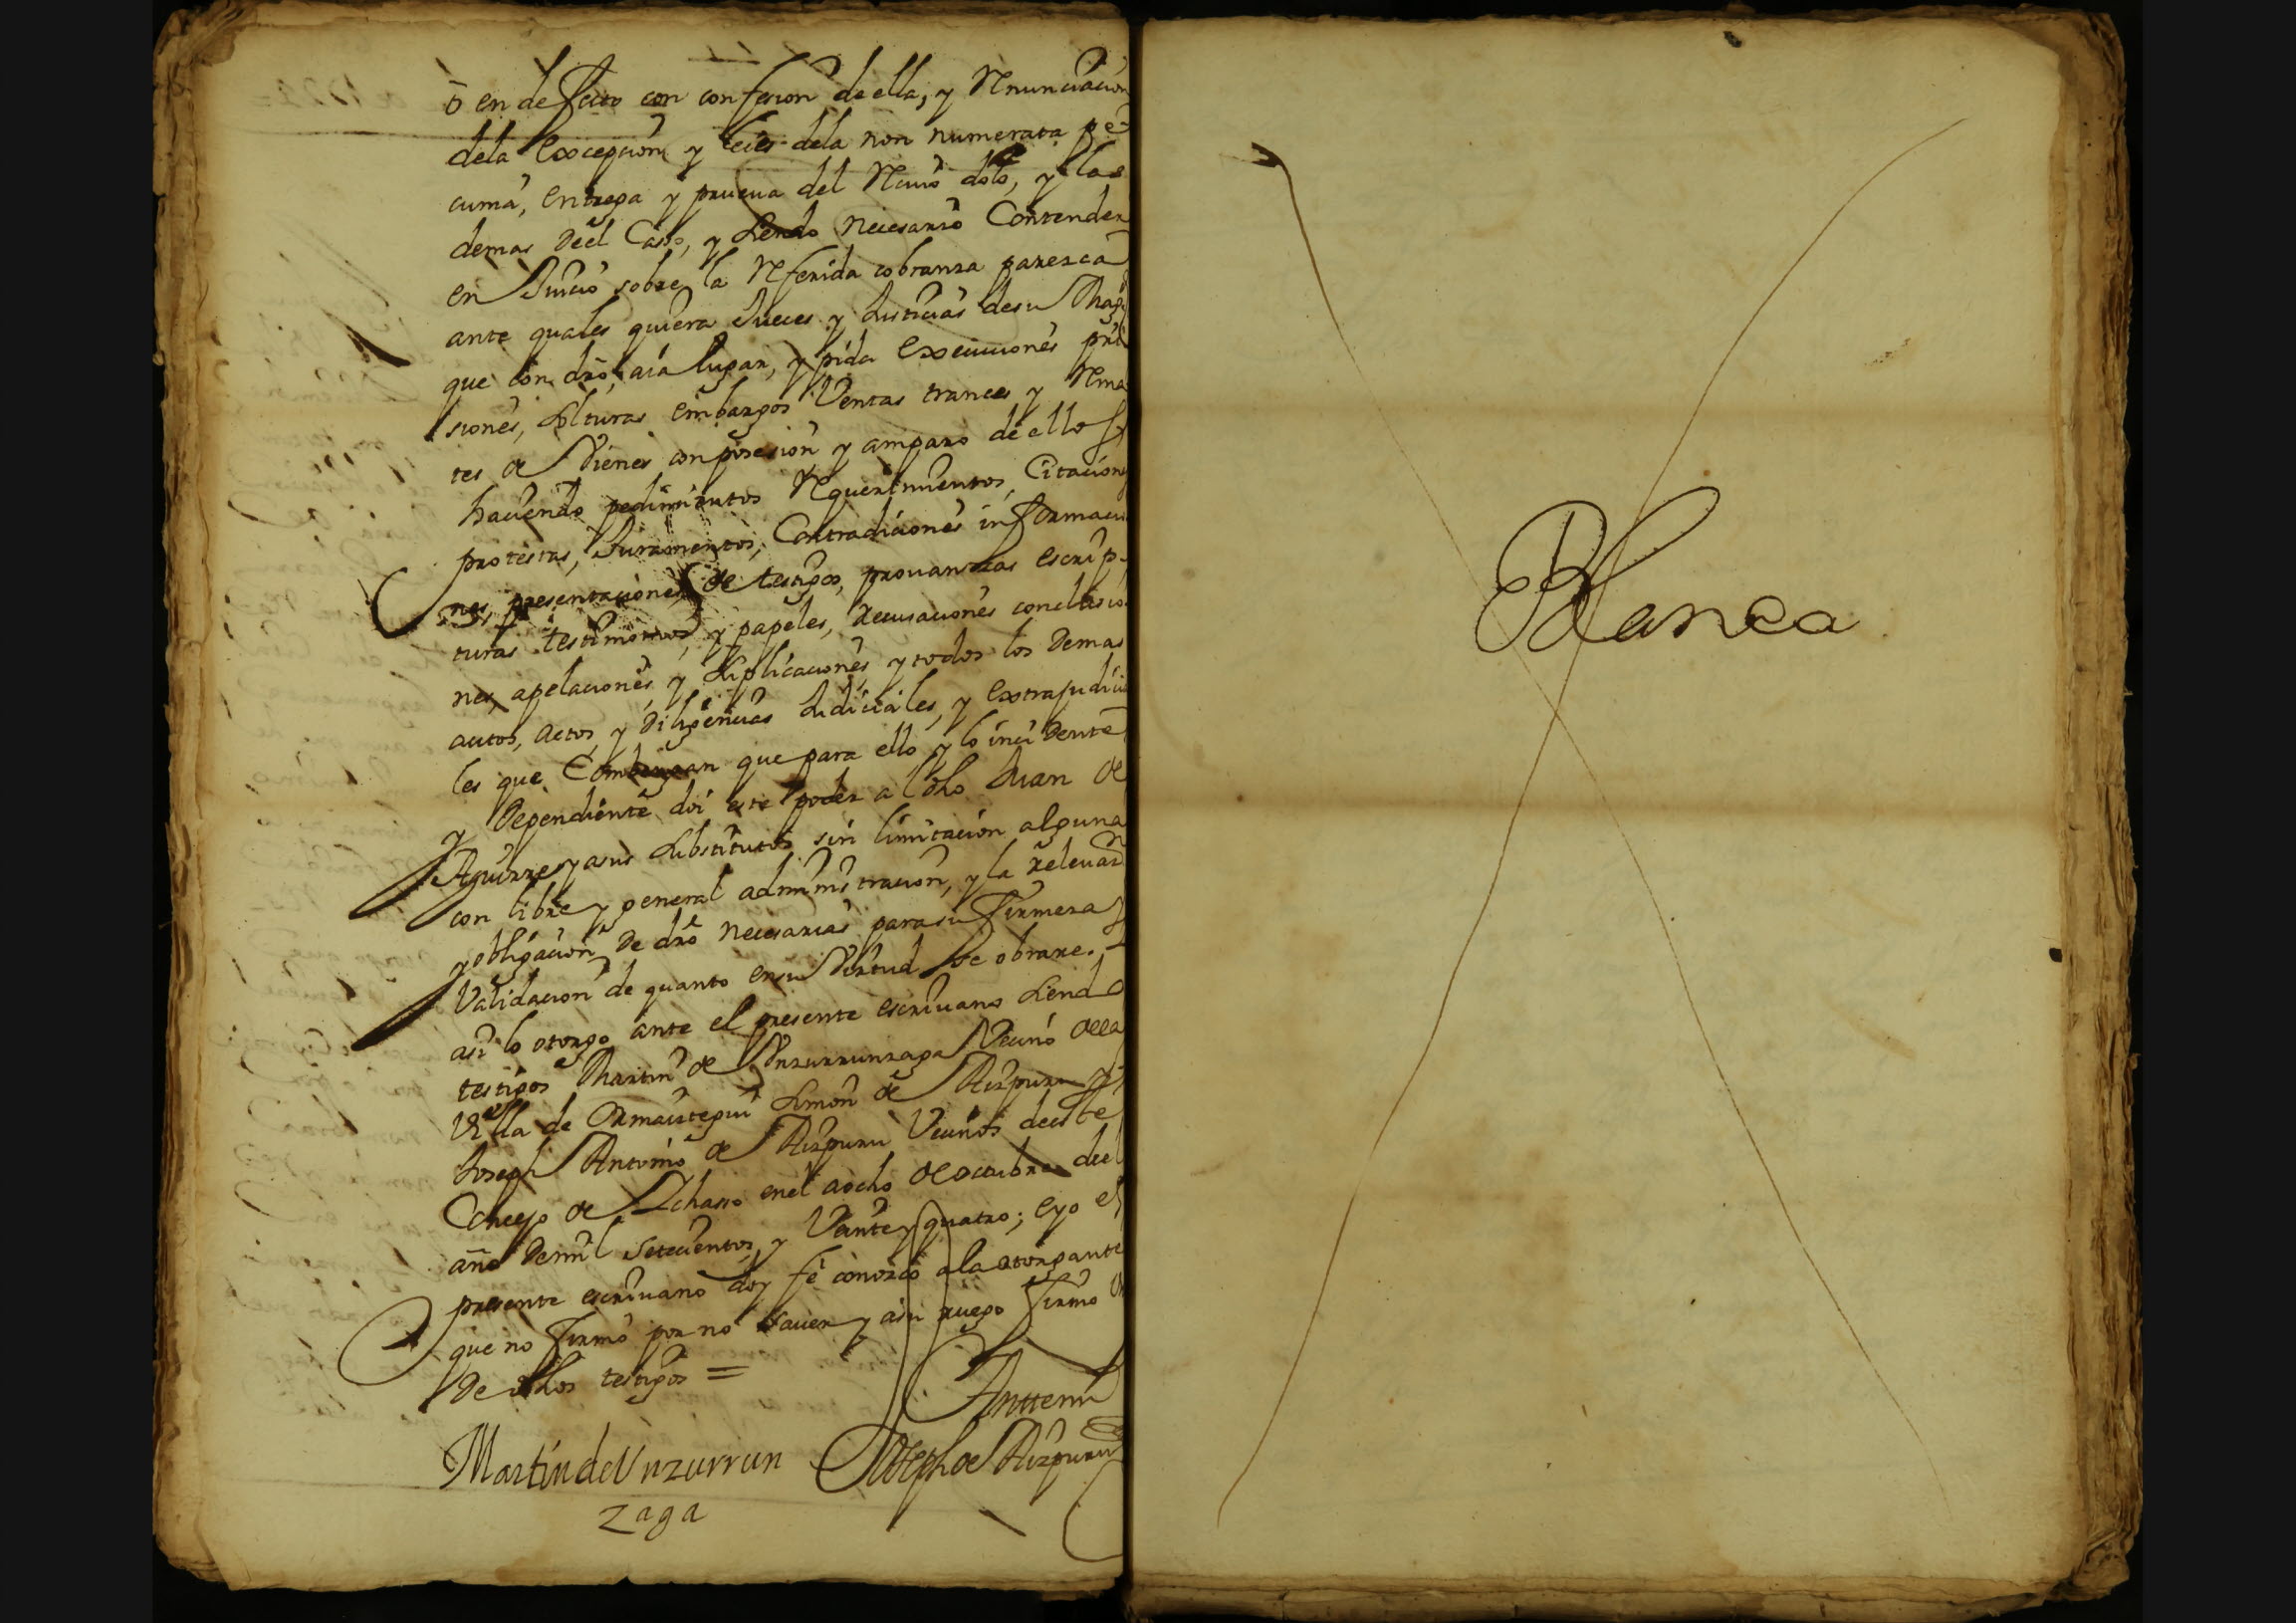 ô en defecto con confesion de ella, y Renunciacion
dela Excepcion y leies dela non numerata pe
cunia, entrega y prueua del Reciuo dolo, y las
demas deel Caso, y siendo necesario Contender
en Juicio sobre la Referida cobranza paresca
ante quales quiera Jueces y Justicias de su Magd
que con dro, aia lugar, y pida Execuciones pri
siones, solturas embargos Ventas trances y Rema
tes de Vienes con posesion y amparo de ellos
haciendo pedimientos Requerimientos, Citacion
protestas, Juramentos, Contradiciones informacio
nes, presentaciones de testigos, prouanzas escrip-
turas testimonios, y papeles, recusaciones conclusio
nes, apelaciones, y suplicaciones, y todos los demas
autos, actos, y diligencias Judiciales, y extrajudicia
les que Combengan que para ello y lo incidente
y dependiente doi este poder al dho Juan de
Aguirre y a sus substitutos sin limitacion alguna
con libre y general administracion, y la releuaz
y obligacion de dro necesarias para su firmeza y
Validacion de quanto en su Virtud se obrare.
asi lo otorgo ante el presente escriuano siendo
testigos Martin de Vnzurrunzaga Vecino dela
Villa de Ormaiztegui Simon de Aizpuru y
Joseph Antonio de Aizpuru Vecinos de este
Concejo de Ichaso en el a ocho de octubre del
año de mil setecientos y Veinte y quatro; e yo el
presente escriuano doy fe conozco a la otorgante
que no firmo por no sauer y a su ruego firmo Vn
de dhos testigos =
Antte mi
Martin de Vnzurrun Joseph de Aizpuru
zaga
Blanca